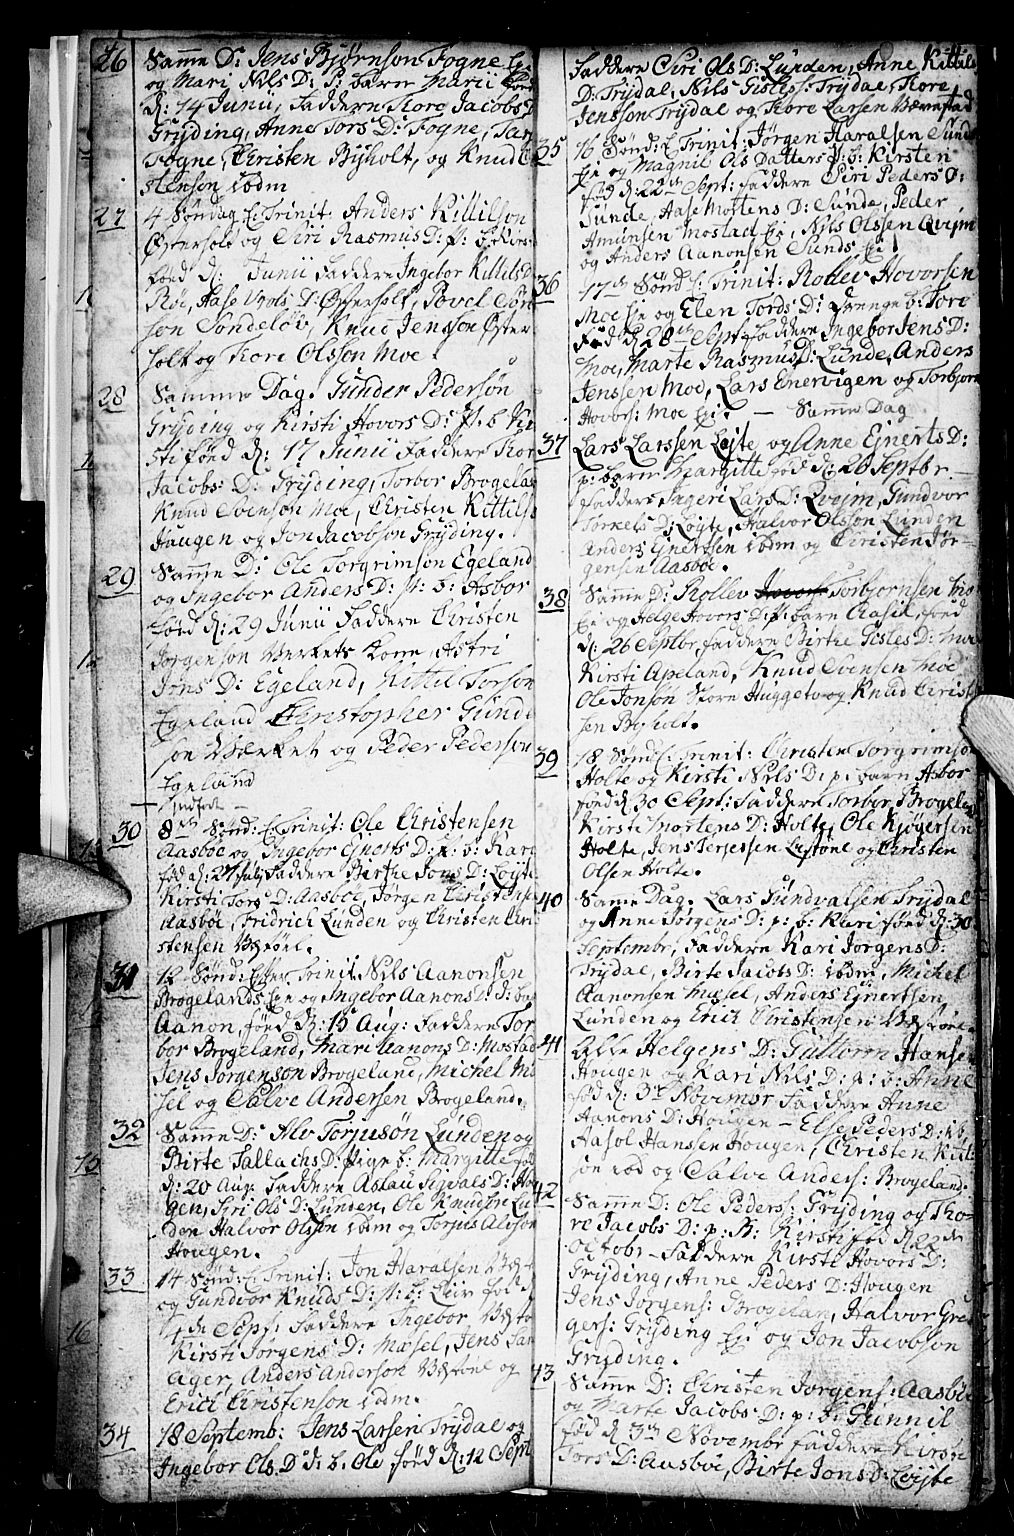 26 Samme D: Jens Bjørnson Fogne
og Mari Nils D: P: barn Marii
D: 14 Junii, Faddere Tore Jacobs D
Gryding, Anne Tors D: Fogne,
Fogne, Christen Byholt, og Knud
stenson ibdm
27 4 Søndag E: Trinit: Anders Kittilson
Østerholt og Siri Rasmus D: P: b
fød d: Junii Faddere Ingebor Kittils D
Røe, Aase D: Østerholt, Povel
son Sondeløv, Knud Jensson Øster
holt og Tore Olsson Moe.
28 Samme Dag. Gunder Pederson
Gryding og Kirsti Hovors D: P. b
sti fød d: 17 Junii Faddere Tor
Jacobs D: Gryding, Torbor Brogela
Knud Evenson Moe, Christen Kittils
Haugen og Jon Jacobson Gryding.
29 Samme D: Ole Torgrimson Egeland
og Ingebor Anders D: P: b: Asbor
fød d: 29 Junii Faddere Christen
Jorgenson Verkets Kone, Astri
Jons D: Egeland, Kittil Torson
Egeland Christopher Gunde
son Værket og Peder Pederson
Egeland
30 8de Sønd: E: Trinit: Ole Christensen
Aasbøe og Ingebor Ejnerts D: P: b: Kar
fød d: 27 Julj Faddere Birthe Jons D: Løyte
Kirsti Tors D: Aasbøe, Jørgen Christense
Aasbøe, Fridrich Lunden og Christen Chri
stensen
31 12 Sønd: Efter Trinit. Nils Aanonsen
Brogelands Eje og Ingebor Aanons D: d: ba
Aanon, fød d: 15 Aug: Faddere Tor
bor Brogeland, Mari Aanons D: Mostad
Jens Jorgenson Brogeland, Michel Mæ
sel og Salve Andersen Brogeland.
32 Samme D: Alv Torjuson Lunden og
Birte Sallachs D: Pige b: Margitte fø
d: 20 Aug. Faddere Aslau Sigvals D: Hou
gen, Siri Ols D: Lunden, Ole Knudsen Lun
den Halvor Olssen ibdm og Torjus Alvson
Hougen.
33 14 Sønd: E: Trinit: Jon Haralsen
og Gundvor Knuds D: P: b: Leiv fød d
4de Sept: Faddere Ingebor
Kirsti Jorgens D: Mæsel, Jens
Ager, Anders Anderson og
Erich Christenson ibdm.
34 18 Septemb: Jens Larsen Trydal og
Ingebor Ols D: d: b: Ole fød d: 12 Sept
Faddere Siri Ols D: Lunden, Anne Kittils
D: Trydal, Nils Gislesson Trydal, Tore
Jensson Trydal og Tore Larsen
35 16 Sønd: E: Trinit: Jørgen Haralsen Sunde
Eje og Magnil Ols Datters P: b: Kirsten
fød d: 22de Sept: Faddere Siri Peders D:
Sunde, Aase Mortens D: Sunde, Peder
Amunsen Mostad Eje, Nils Olssen Qvejm
og Anders Aanonsen Sunds Eje
36 17de Sønd: E: Trinit: Rollev Hovorsen
Moe Eje og Elen Tords D: drenge b: Tore
fød d 28de Sept: Faddere Ingebor Jens D:
Moe, Marte Rasmus D: Lunde, Anders
Jenssen Moe, Lars Enervigen og Torbjorn
Hovors: Moe Eje. — Samme Dag
37 Lars Larssen Løjte og Anne Ejnerts D:
p: barn Margitte fød d: 26 Septbr —
Faddere Ingeri Lars D: Qvejm, Gundvor
Torkels D: Løyte, Halvor Olsson Lunden
Anders Ejnertsen ibdm og Christen Jør-
gensen Aasbøe.
38 Samme D: Rollev Torbjornsen Moe
Eje og Helge Hovors D: P: barn Aasil, fød
d: 26 Septbr, Faddere Birthe Gisles D: Moe
Kirsti Apeland, Knud Evensen Moe
Ole Jonson Store Huggeto og Knud Christ
sen Byholt.
39 18 Sønd: E: Trinit: Christen Torgrimson
Holte og Kirsti Nils D: p: barn Asbor
fød d 30 Sept: Faddere Torbor Brogeland
Kirsti Mortens D: Holte, Ole Kjøgersen
Holte, Jens Terjessen og Christen
Olsen Holte.
40 Samme Dag. Lars Sundvalsen Trydal
og Anne Jorgens D: p: b: Kari fød d: 30
Septembr, Faddere Kari Jorgens D:
Trydal, Birte Jacobs D: ibdm, Michel
Aanonsen Mæsel, Anders Ejnertsen
Lunden og Erich Christensen
41 Alle Helgens D: Guttorm Hansen
Hougen og Kari Nils D: p: b: Anne
fød d: 3de Novembr Faddere Anne
Aanons D: Hougen — Else Peders D:
Aasol Hanssen Hougen, Christen Kittil
son ibd og Salve Anders: Brogeland.
42 Samme D: Ole Peders: Gryding og Tho-
re Jacobs D: p: B: Kirsti fød d: 22de
Octobr — Faddere Kirsti Hovors D:
Gryding, Anne Peders D: Hougen
Jens Jorgens: Brogelan, Halvor Gre
gers: Gryding Eje og Jon Jacobson
Gryding.
43 Samme D: Christen Jorgens: Aasbøe
og Marte Jacobs D: p: b: Gunnil
fød d 3de Novembr Faddere Kirsti
Tors D: Aasbøe, Birte Jons D: Løjte